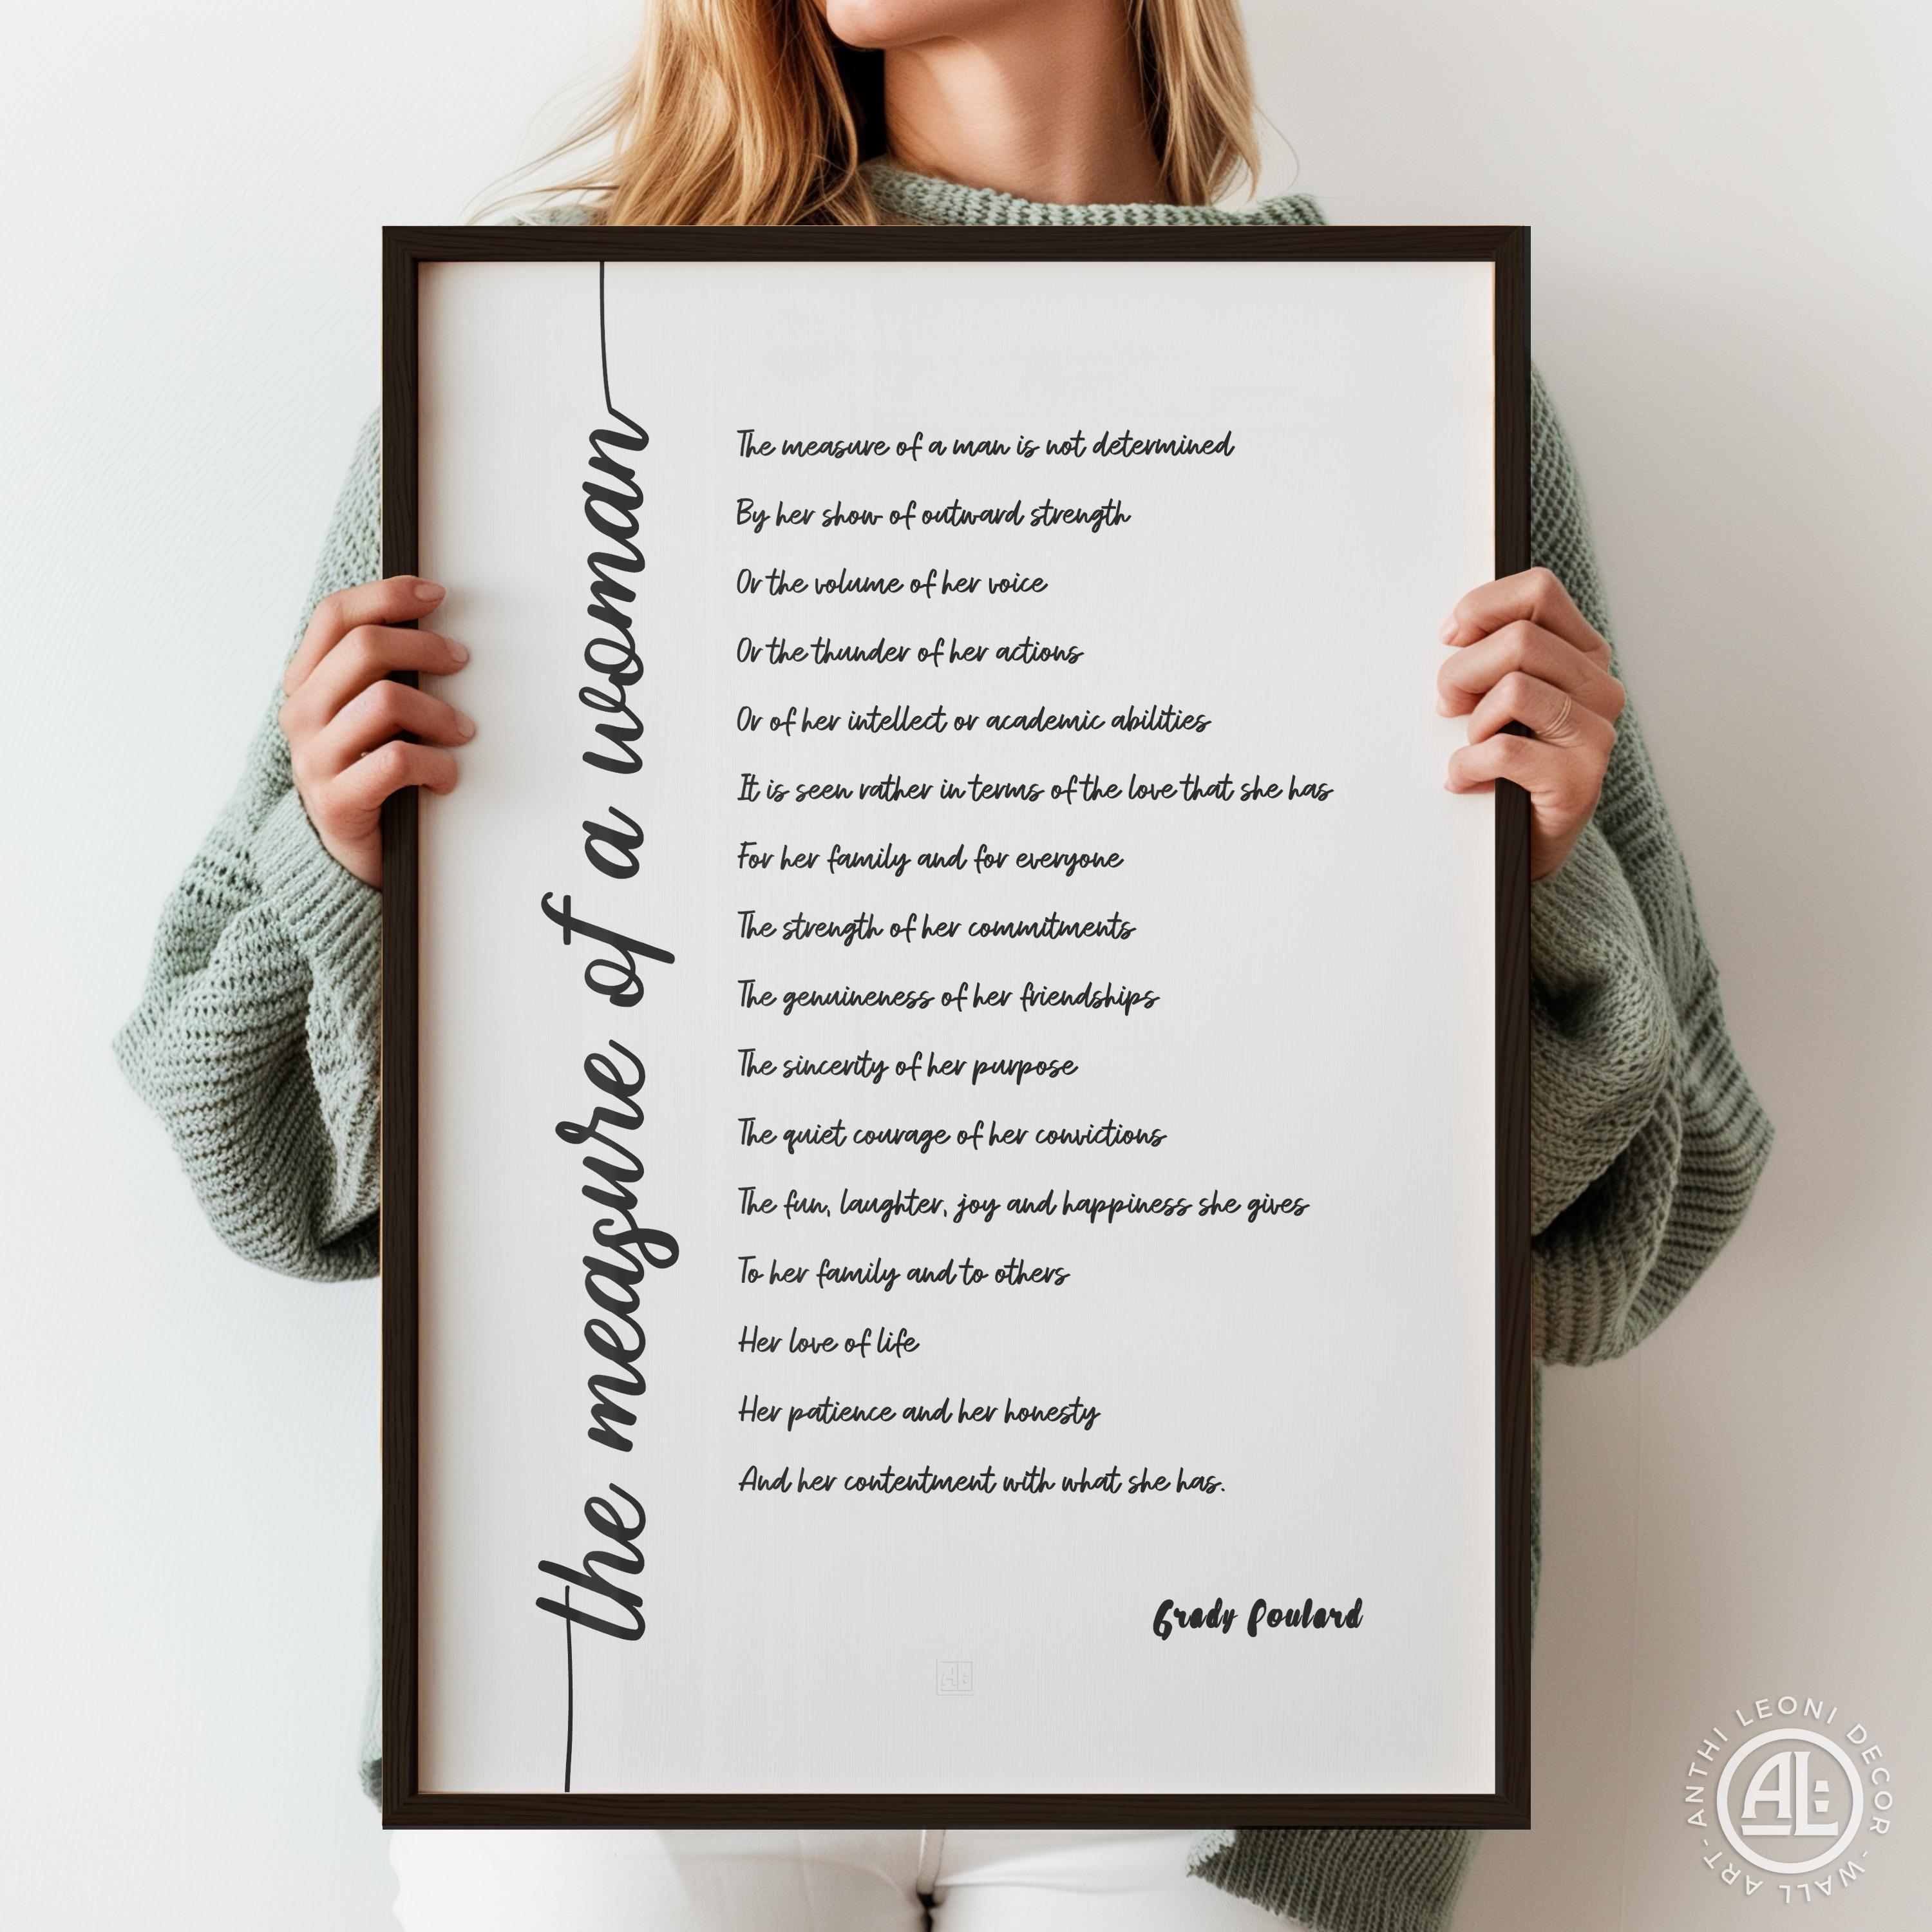 the measure of a woman
The measure of a man is not determined
By her show of outward strength
Or the volume of her voice
Or the thunder of her actions
Or of her intellect or academic abilities
It is seen rather in terms of the love that she has
For her family and for everyone
The strength of her commitments
The genuineness of her friendships
The sincerity of her purpose
The quiet courage of her convictions
The fun, laughter, joy and happiness she gives
To her family and to others
Her love of life
Her patience and her honesty
And her contentment with what she has.
Grady Poulard
AL
ANTHI LEONI DECOR - WALL ART -
AL